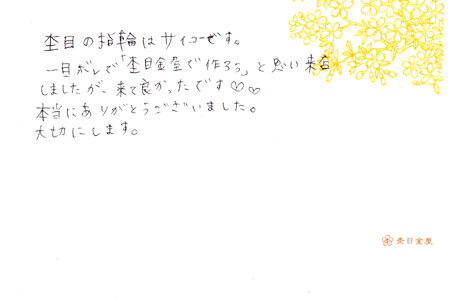 杢目の指輪はサイコーです。
一目ボレで「杢目金屋で作ろう」と思い来店
しましたが、来て良かったです♡♡
本当にありがとうございました。
大切にします。
杢目金屋